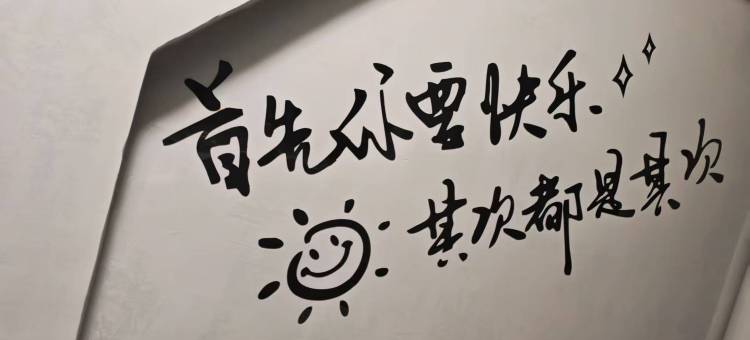 首先你要快乐
其次都是其次